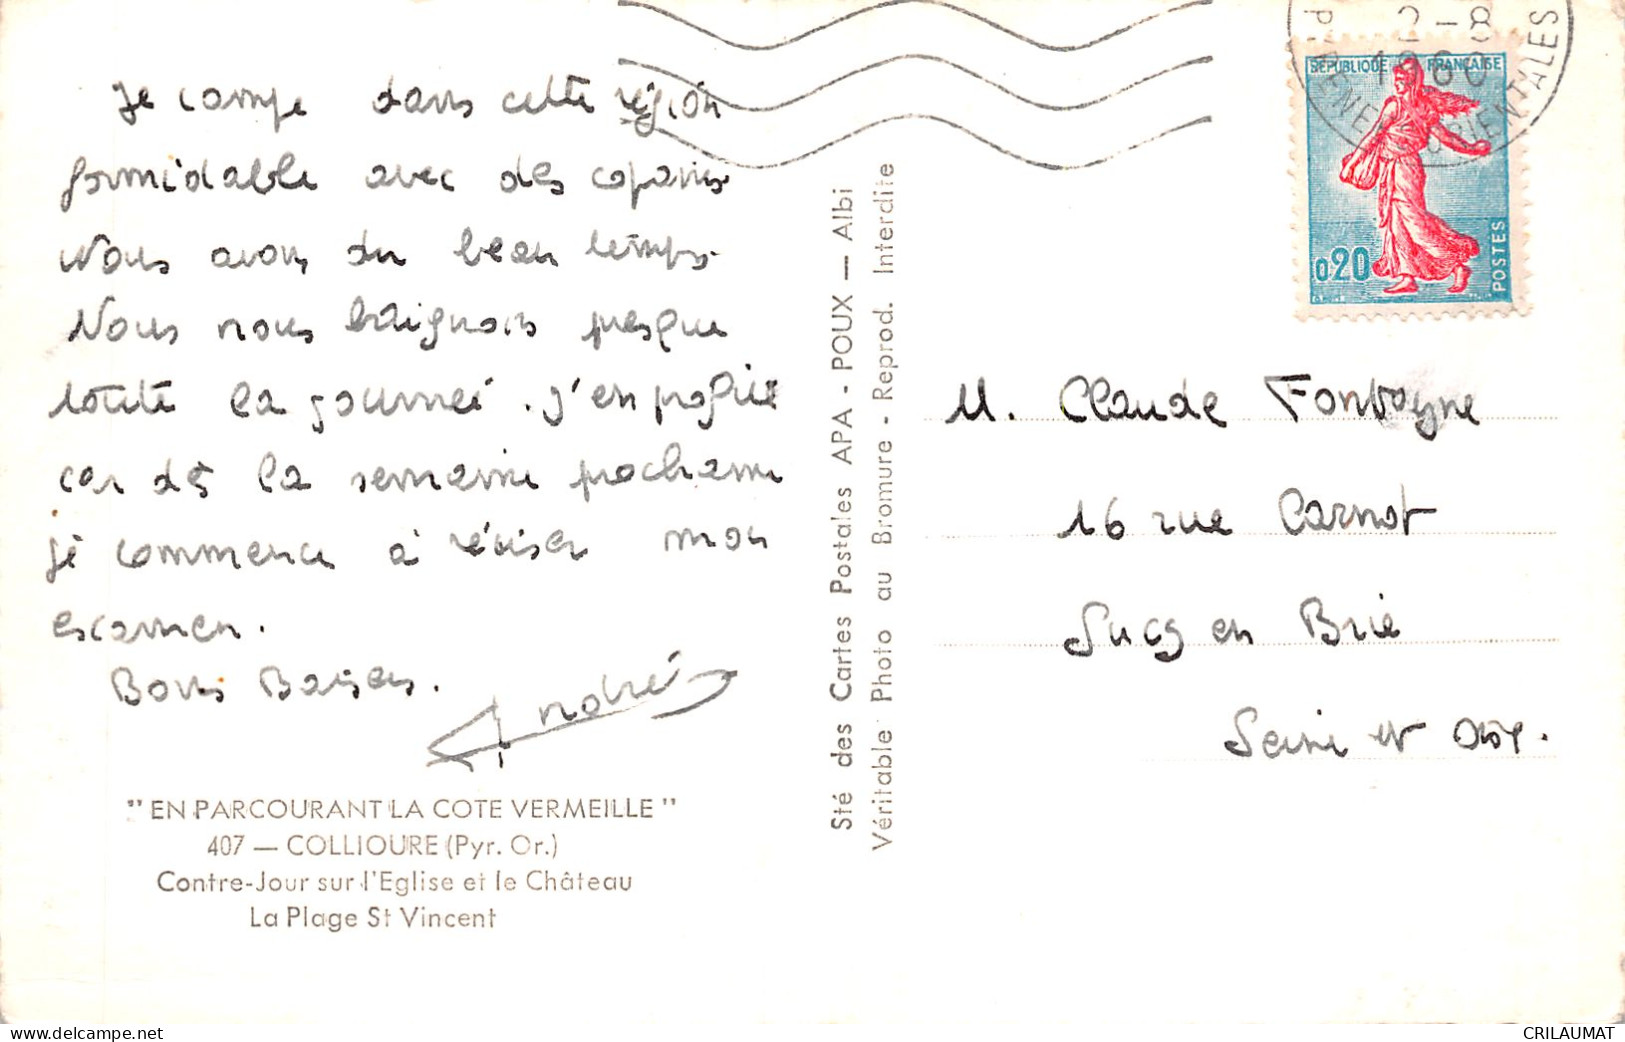 Je campe dans cette région
formidable avec des copains
Nous avons du beau temps.
Nous nous baignons presque
toute la journée. J'en profite
car dès la semaine prochaine
je commence à réviser mon
examen.
Bons Baisers.
André
" EN PARCOURANT LA COTE VERMEILLE "
407 — COLLIOURE (Pyr. Or.)
Contre-Jour sur l'Eglise et le Château
La Plage St Vincent
Sté des Cartes Postales APA - POUX — Albi
Véritable Photo au Bromure - Reprod. Interdite
18
1960
PYRENEES ORIENTALES
REPUBLIQUE FRANÇAISE
0,20
POSTES
M. Claude Fontayne
16 rue Carnot
Sucy en Brie
Seine et Oise.
delcampe.net
CRILAUMAT